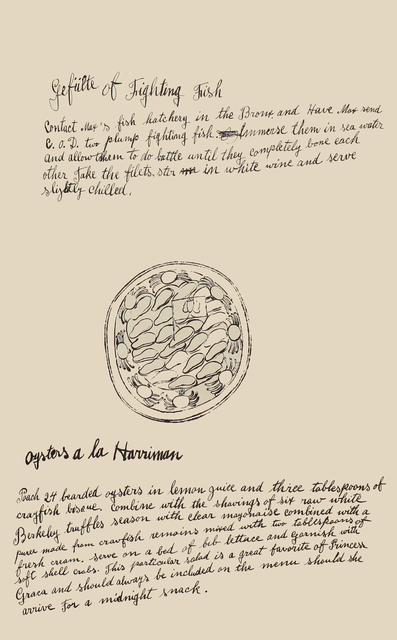 Gefülte of Fighting Fish
Contact Max's fish hatchery in the Bronx and Have Max send
C.O.D. two plump fighting fish. Immerse them in sea water
and allow them to do battle until they completely bone each
other Take the filets. stir in white wine and serve
slightly chilled.
Oysters a la Harriman
Poach 24 bearded oysters in lemon juice and three tablespoons of
crayfish bisque. Combine with the shavings of six raw white
Berkeley truffles season with clear mayonaise combined with a
puree made from crawfish remains mixed with two tablespoons of
fresh cream. serve on a bed of beb lettuce and garnish with
soft shell crabs. This particular salad is a great favorite of Princess
Graca and should always be included on the menu should she
arrive for a midnight snack.